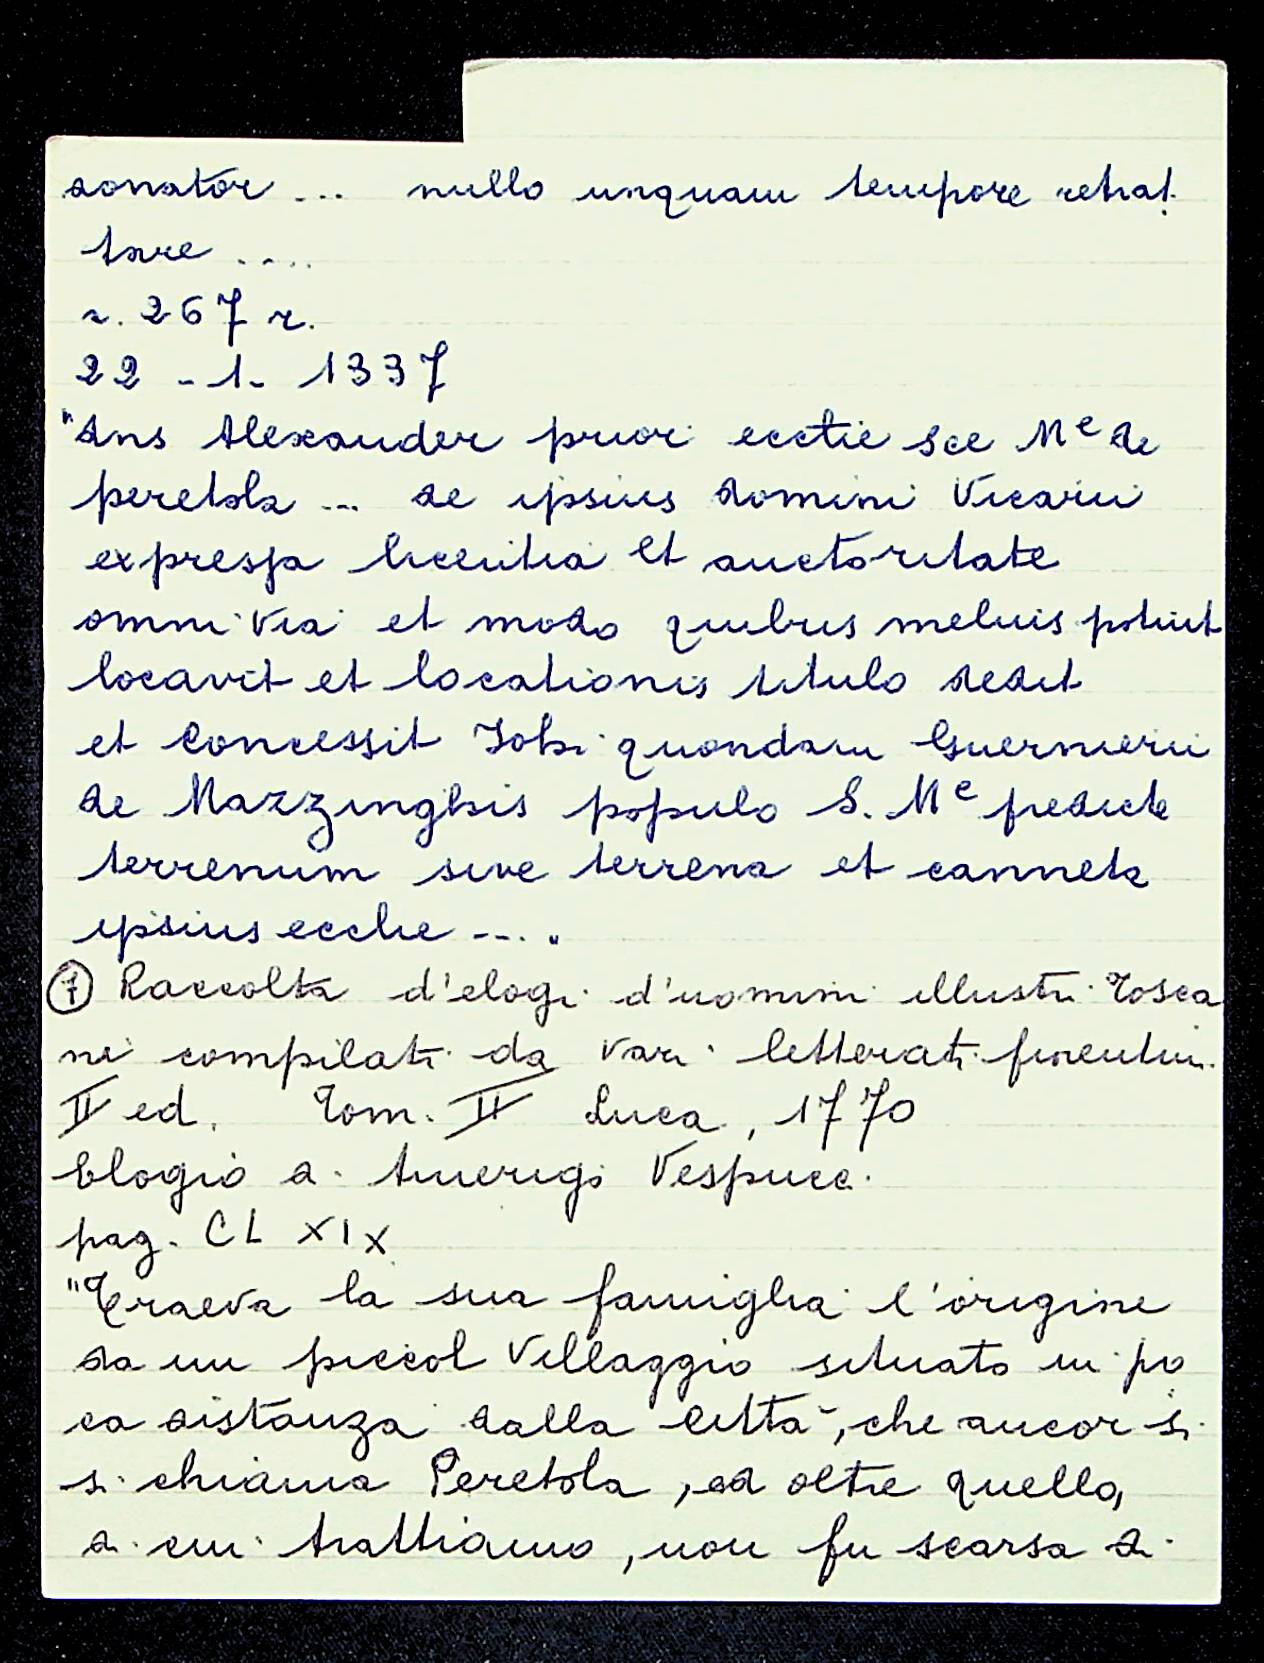 donator ... nullo unquam tempore retrat
tare ....
c. 267 r.
22 - 1 - 1337
"Dns Alexander prior ecctie sce Mᵉ de
peretola ... de ipsius domini Vicarii
expressa licentia et auctoritate
omni via et modo quibus melius potuit
locavit et locationis titulo dedit
et concessit Johi quondam Guernierii
de Mazzinghis populo S. Mᵉ predicte
terrenum sive terrena et canneta
ipsius ecclie ....
⑦ Raccolta d'elogi d'uomini illustri Tosca
ni compilati da vari letterati fiorentini.
II ed. Tom. II Luca, 1770
Elogio di Amerigo Vespucci
pag. CLXIX
"Traeva la sua famiglia l'origine
da un piccol Villaggio situato in po
ca distanza dalla città, che ancor si
si chiama Peretola, ed oltre quello,
di cui trattiamo, non fu scarsa di